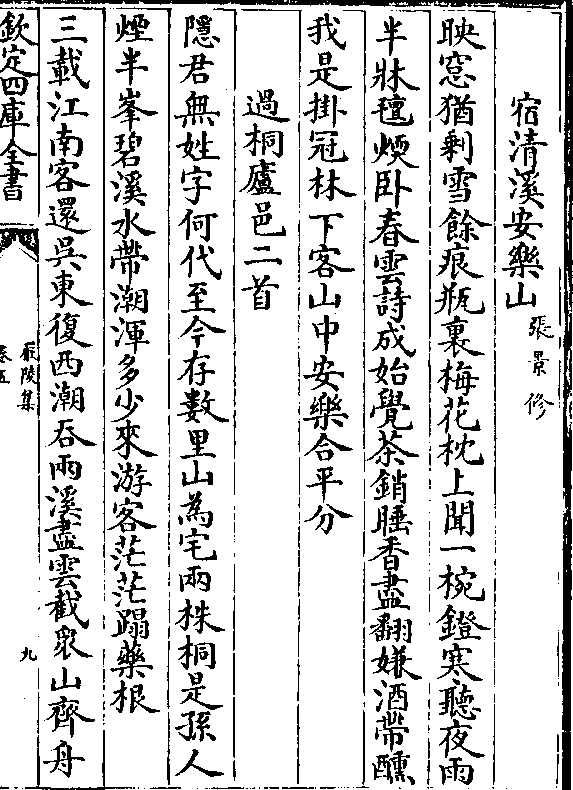 宿清溪安樂山
張景修
映窓猶剩雪餘痕瓶裏梅花枕上聞一椀鐙寒聽夜雨
半牀氊煗臥春雲詩成始覺茶銷睡香盡翻嫌酒帶醺
我是掛冠林下客山中安樂合平分
過桐廬邑二首
隱君無姓字何代至今存數里山為宅兩株桐是孫人
煙半峯碧溪水帶潮渾多少來游客茫茫蹋藥根
三載江南客還吳東復西潮吞兩溪盡雲截衆山齊舟
欽定四庫全書
嚴陵集
卷五
九